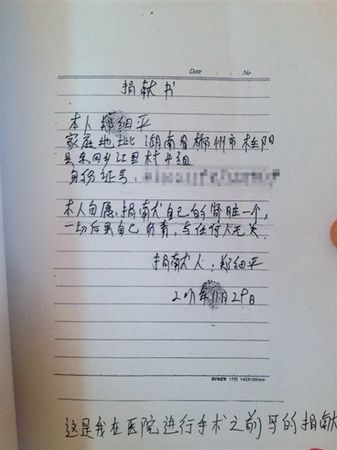 Date No
捐献书
本人郑细平
家庭地址湖南省郴州市桂阳
县乐回乡江里村4组
身份证号:
本人自愿,捐献自己的肾脏一个,
一切后果自己负责,与任何人无关.
捐献人:郑细平
月29日
17行 145X106mm
这是我在医院进行手术之前写的捐献